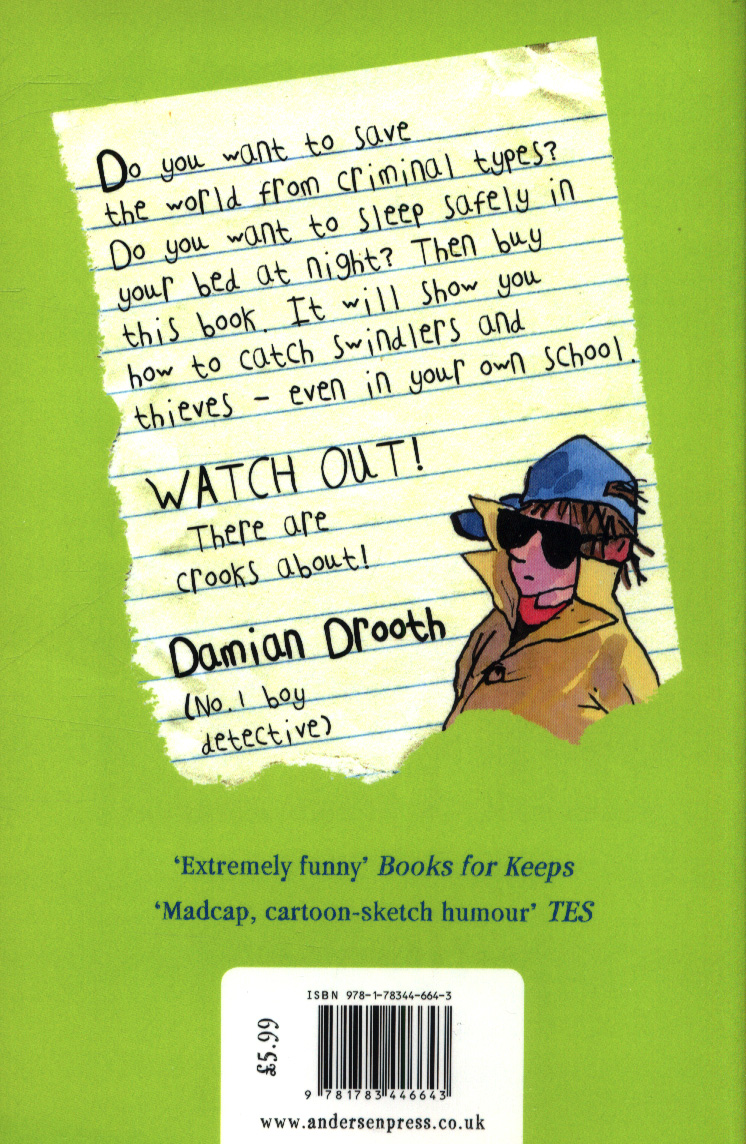 Do you want to save
the world from criminal types?
Do you want to sleep safely in
your bed at night? Then buy
this book. It will show you
how to catch swindlers and
thieves – even in your own school.
WATCH OUT!
There are
crooks about!
Damian Drooth
(No.1 boy
detective)
‘Extremely funny’ Books for Keeps
‘Madcap, cartoon-sketch humour’ TES
ISBN 978-1-78344-664-3
£5.99
9 781783 446643
www.andersenpress.co.uk